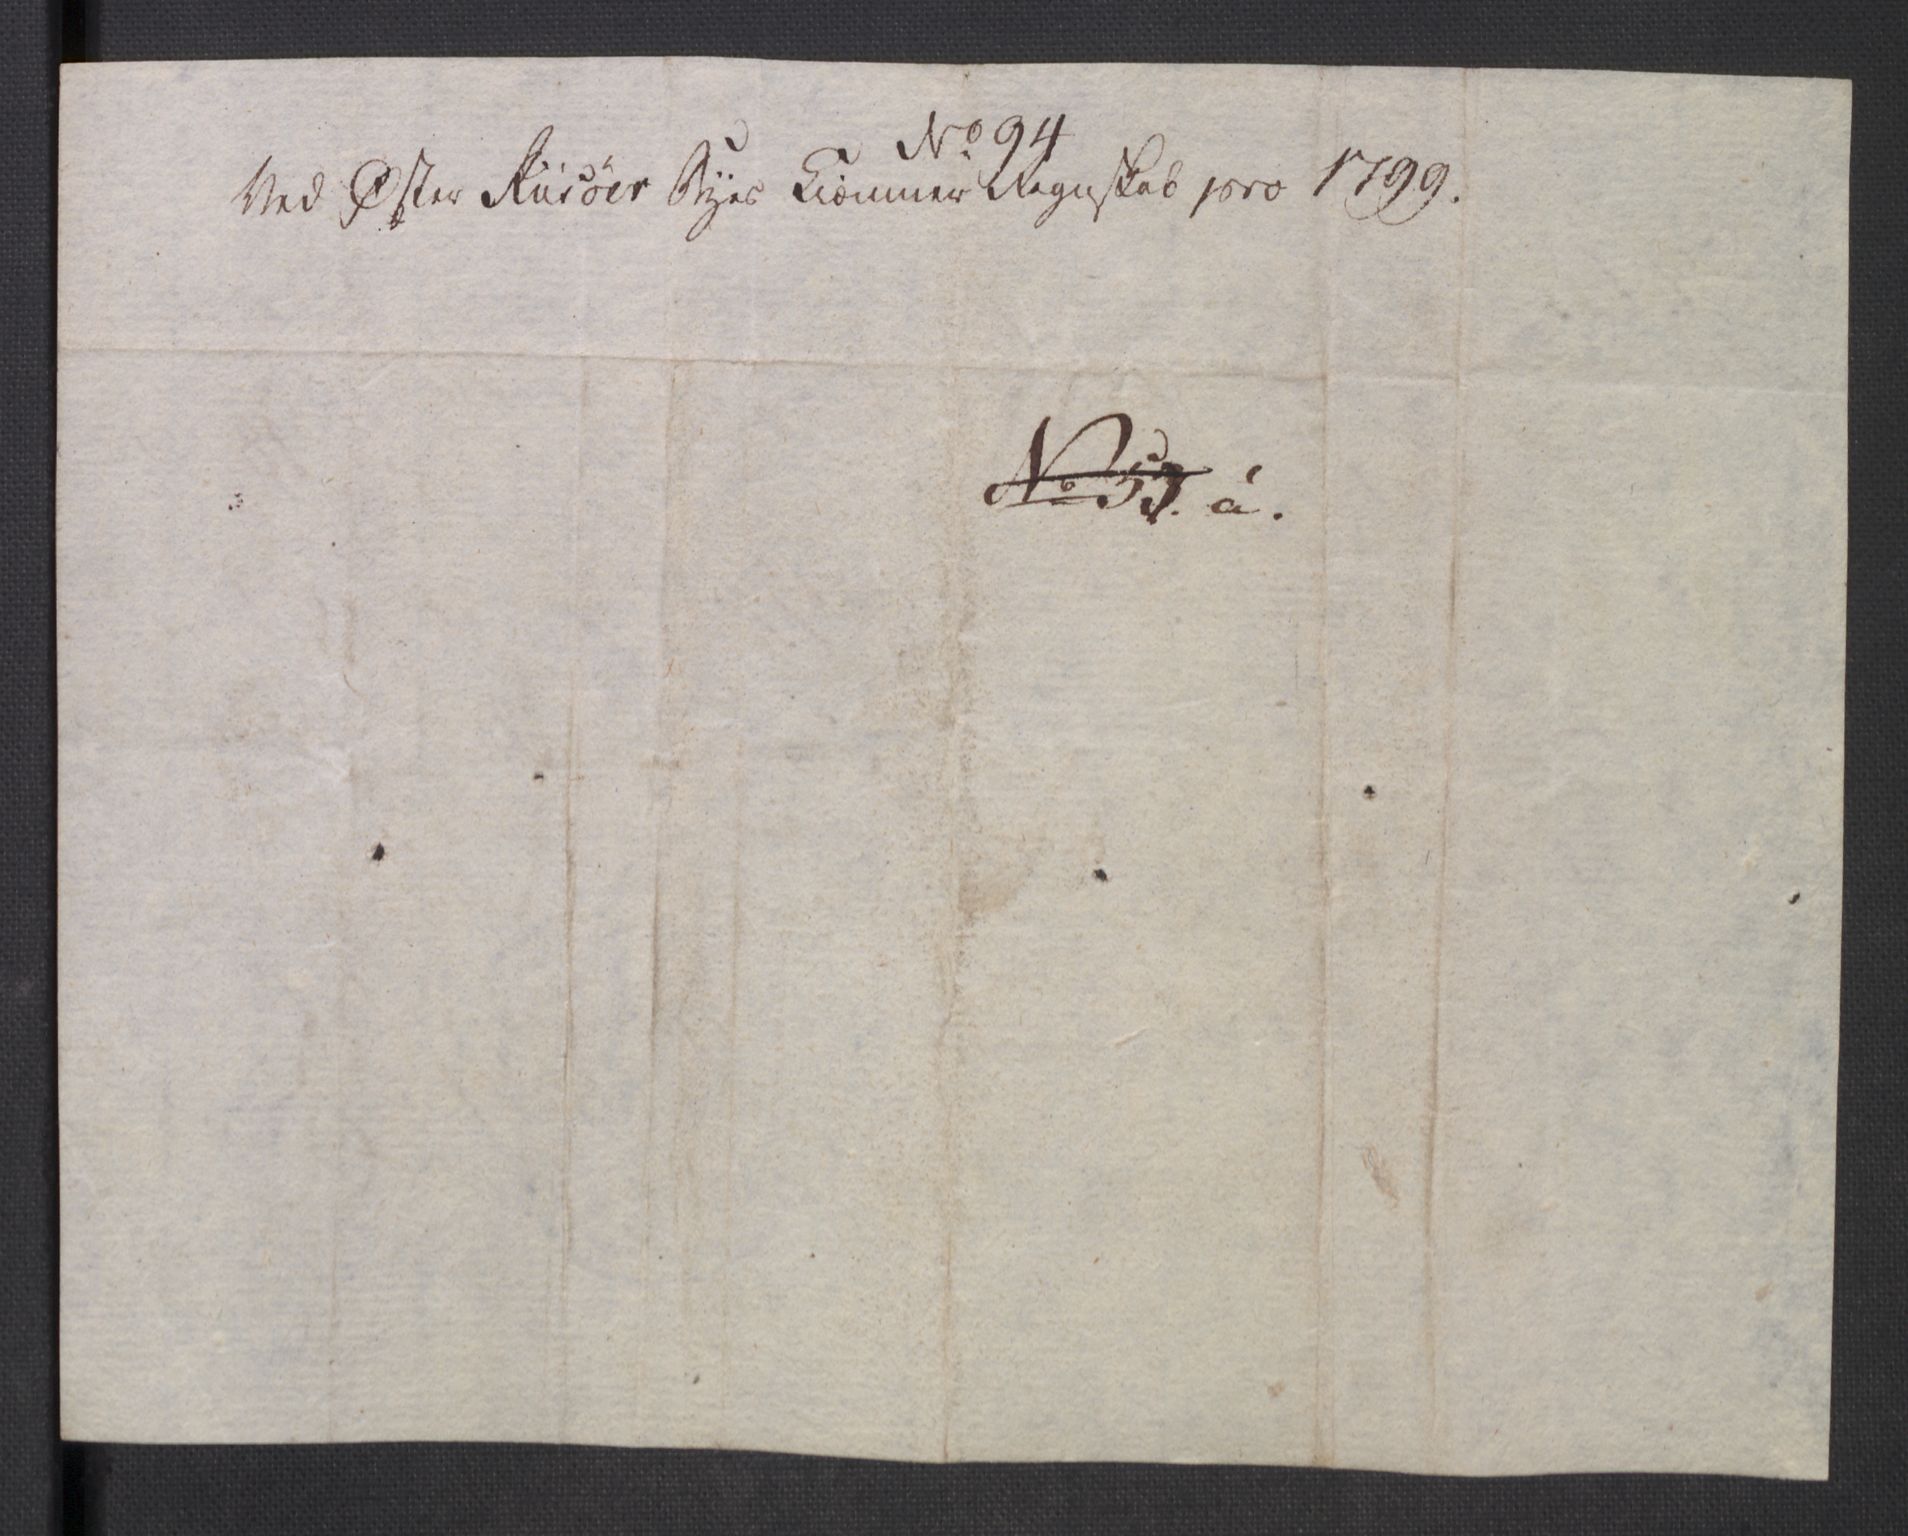 No 94
Ved Øster Riisöer Byes Kiemner Regnskab pro 1799.
No 53. á.